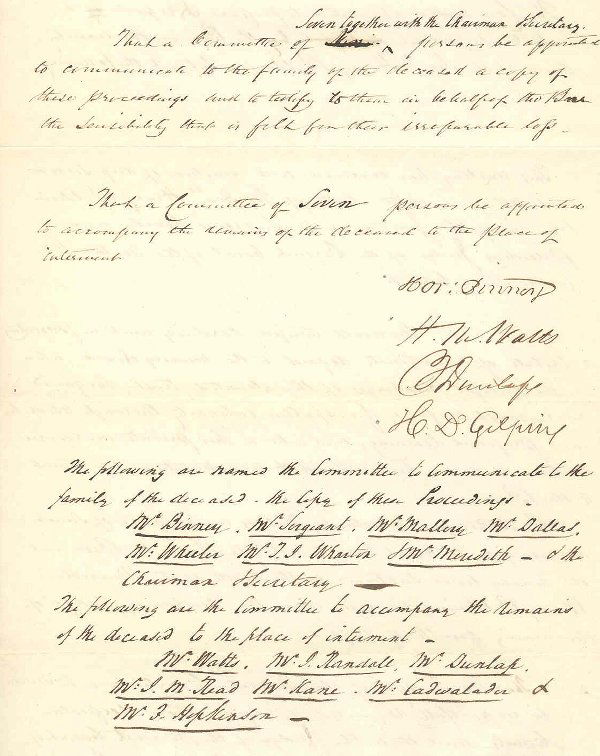 Seven together with the Chairman & Secretary.
That a Committee of persons be appointed
to communicate to the family of the deceased a copy of
these proceedings and to testify to them in behalf of the Bar
the sensibility that is felt for their irreparable loss.
That a Committee of Seven persons be appointed
to accompany the remains of the deceased to the place of
interment
Hor: Binney
H. M. Watts
T Dunlap
H. D. Gilpin
The following are named the Committee to Communicate to the
family of the deceased - the Copy of these Proceedings -
Mr. Binney. Mr. Sergeant. Mr. Mallery Mr. Dallas.
Mr. Wheeler Mr. T. I. Wharton & Mr. Meredith - & the
Chairman & Secretary —
The following are the Committee to accompany the remains
of the deceased to the place of interment -
Mr. Watts. Mr. J. Randall. Mr. Dunlap.
Mr. J. M. Read Mr. Kane. Mr. Cadwalader &
Mr. F. Hopkinson —